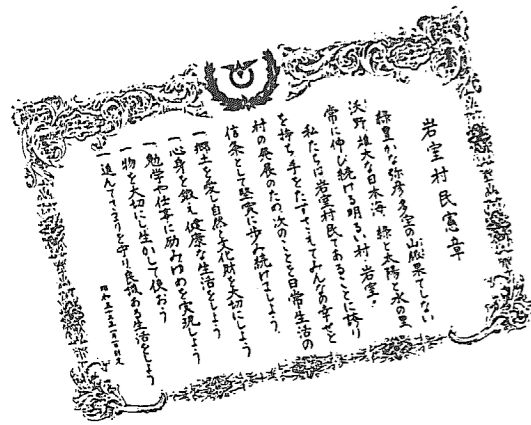 岩室村民憲章
緑豊かな弥彦多宝の山脈果てしない
沃野 雄大な日本海、緑と太陽と水の里
常に伸び続ける明るい村、岩室。
私たちは岩室村民であることに誇り
を持ち、手をたずさえてみんなの幸せと
村の発展のため、次のことを日常生活の
信条として堅実に歩み続けましょう。
一 郷土を愛し自然と文化財を大切にしよう
一 心身を鍛え健康な生活をしよう
一 勉学や仕事に励みゆめを実現しよう
一 物を大切にし生かして使おう
一 進んできまりを守り良識ある生活をしよう